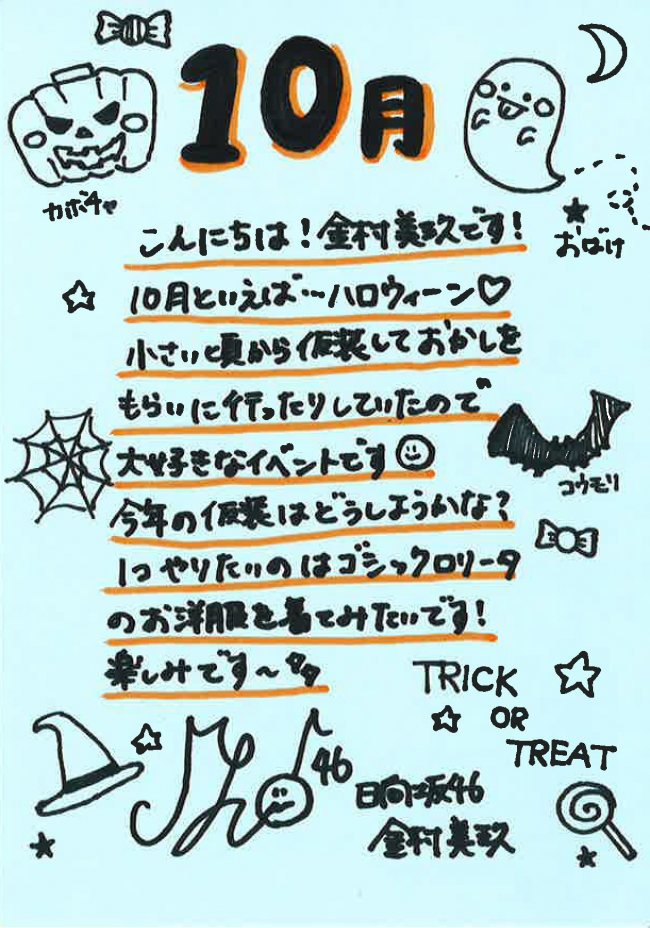 10月
カボチャ
おばけ
こんにちは!金村美玖です!
10月といえば…ハロウィーン♡
小さい頃から仮装しておかしを
もらいに行ったりしていたので
大好きなイベントです☺
コウモリ
今年の仮装はどうしようかな?
1つやりたいのはゴシックロリータ
のお洋服を着てみたいです!
楽しみです〜
TRICK
OR
TREAT
46
日向坂46
金村美玖